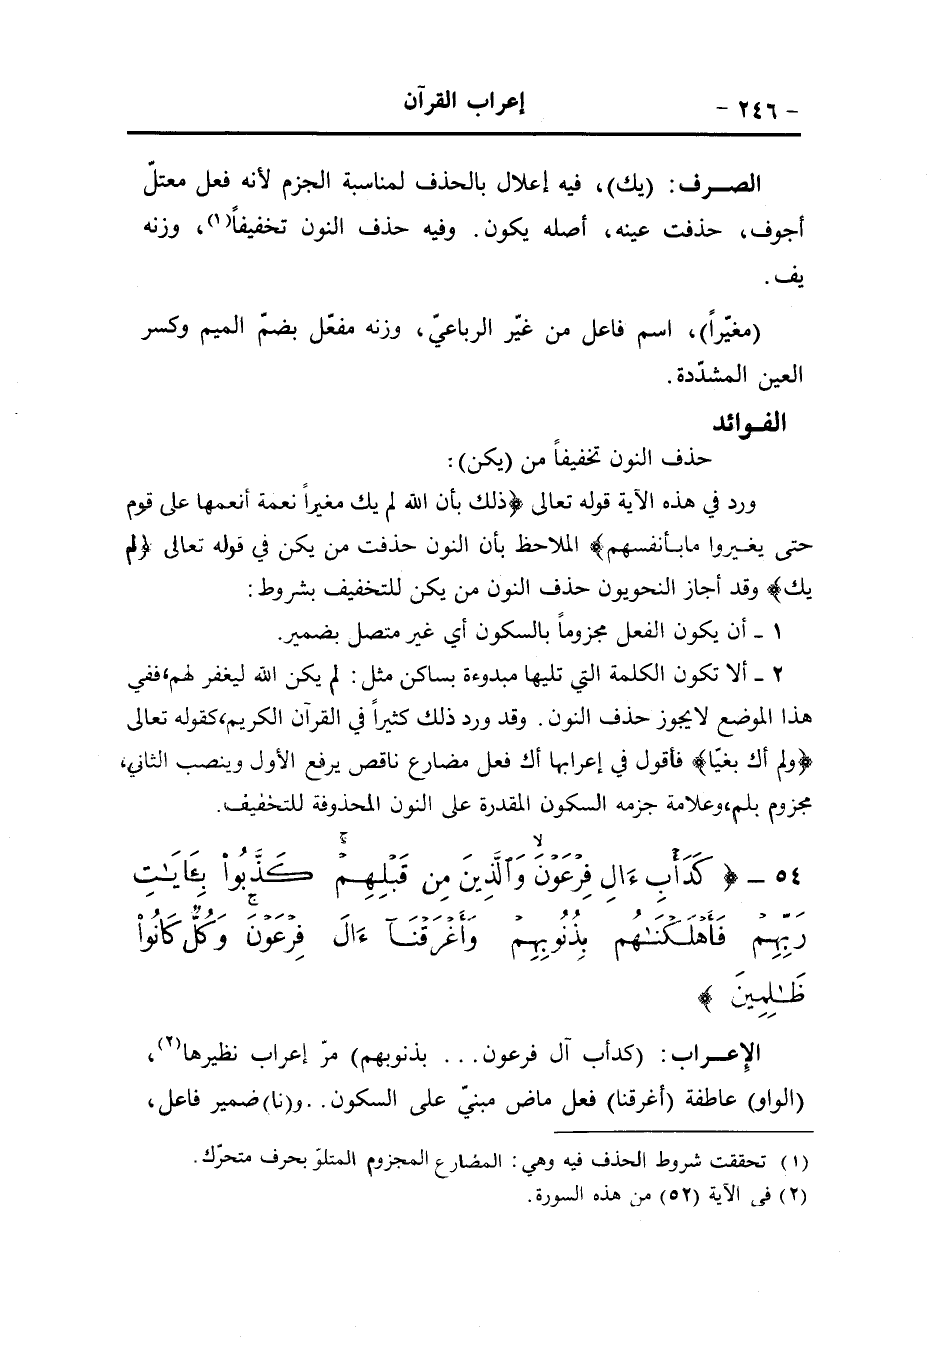 - ٢٤٦ - إعراب القرآن
الصـرف: (يك)، فيه إعلال بالحذف لمناسبة الجزم لأنه فعل معتلّ
أجوف، حذفت عينه، أصله يكون. وفيه حذف النون تخفيفاً(١)، وزنه
يف.
(مغيّراً)، اسم فاعل من غيّر الرباعيّ، وزنه مفعّل بضمّ الميم وكسر
العين المشدّدة.
الفـوائد
حذف النون تخفيفاً من (يكن):
ورد في هذه الآية قوله تعالى ﴿ذلك بأن الله لم يك مغيراً نعمة أنعمها على قوم
حتى يغـيروا مابـأنفسهم﴾ الملاحظ بأن النون حذفت من يكن في قوله تعالى ﴿لم
يك﴾ وقد أجاز النحويون حذف النون من يكن للتخفيف بشروط:
١ ـ أن يكون الفعل مجزوماً بالسكون أي غير متصل بضمير.
٢ ـ ألا تكون الكلمة التي تليها مبدوءة بساكن مثل: لم يكن الله ليغفر لهم، ففي
هذا الموضع لايجوز حذف النون. وقد ورد ذلك كثيراً في القرآن الكريم، كقوله تعالى
﴿ولم أك بغيّا﴾ فأقول في إعرابها أك فعل مضارع ناقص يرفع الأول وينصب الثاني،
مجزوم بلم، وعلامة جزمه السكون المقدرة على النون المحذوفة للتخفيف.
٥٤ ـ ﴿ كَدَأْبِ ءَالِ فِرْعَوْنَ ۙ وَٱلَّذِينَ مِن قَبْلِهِمْ ۚ كَذَّبُوا۟ بِـَٔايَـٰتِ
رَبِّهِمْ فَأَهْلَكْنَـٰهُم بِذُنُوبِهِمْ وَأَغْرَقْنَآ ءَالَ فِرْعَوْنَ ۚ وَكُلٌّ كَانُوا۟
ظَـٰلِمِينَ ﴾
الإعـراب: (كدأب آل فرعون... بذنوبهم) مرّ إعراب نظيرها(٢)،
(الواو) عاطفة (أغرقنا) فعل ماض مبنيّ على السكون.. و(نا) ضمير فاعل،
(١) تحققت شروط الحذف فيه وهي: المضارع المجزوم المتلوّ بحرف متحرّك.
(٢) في الآية (٥٢) من هذه السورة.